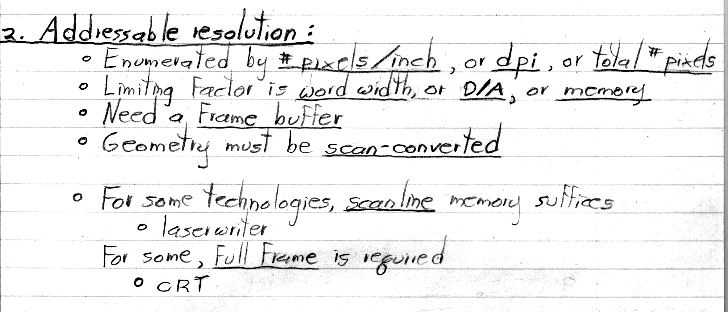 2. Addressable resolution:
◦ Enumerated by # pixels/inch, or dpi, or total # pixels
◦ Limiting Factor is word width, or D/A, or memory
◦ Need a Frame buffer
◦ Geometry must be scan-converted
◦ For some technologies, scanline memory suffices
◦ laserwriter
For some, Full Frame is required
◦ CRT